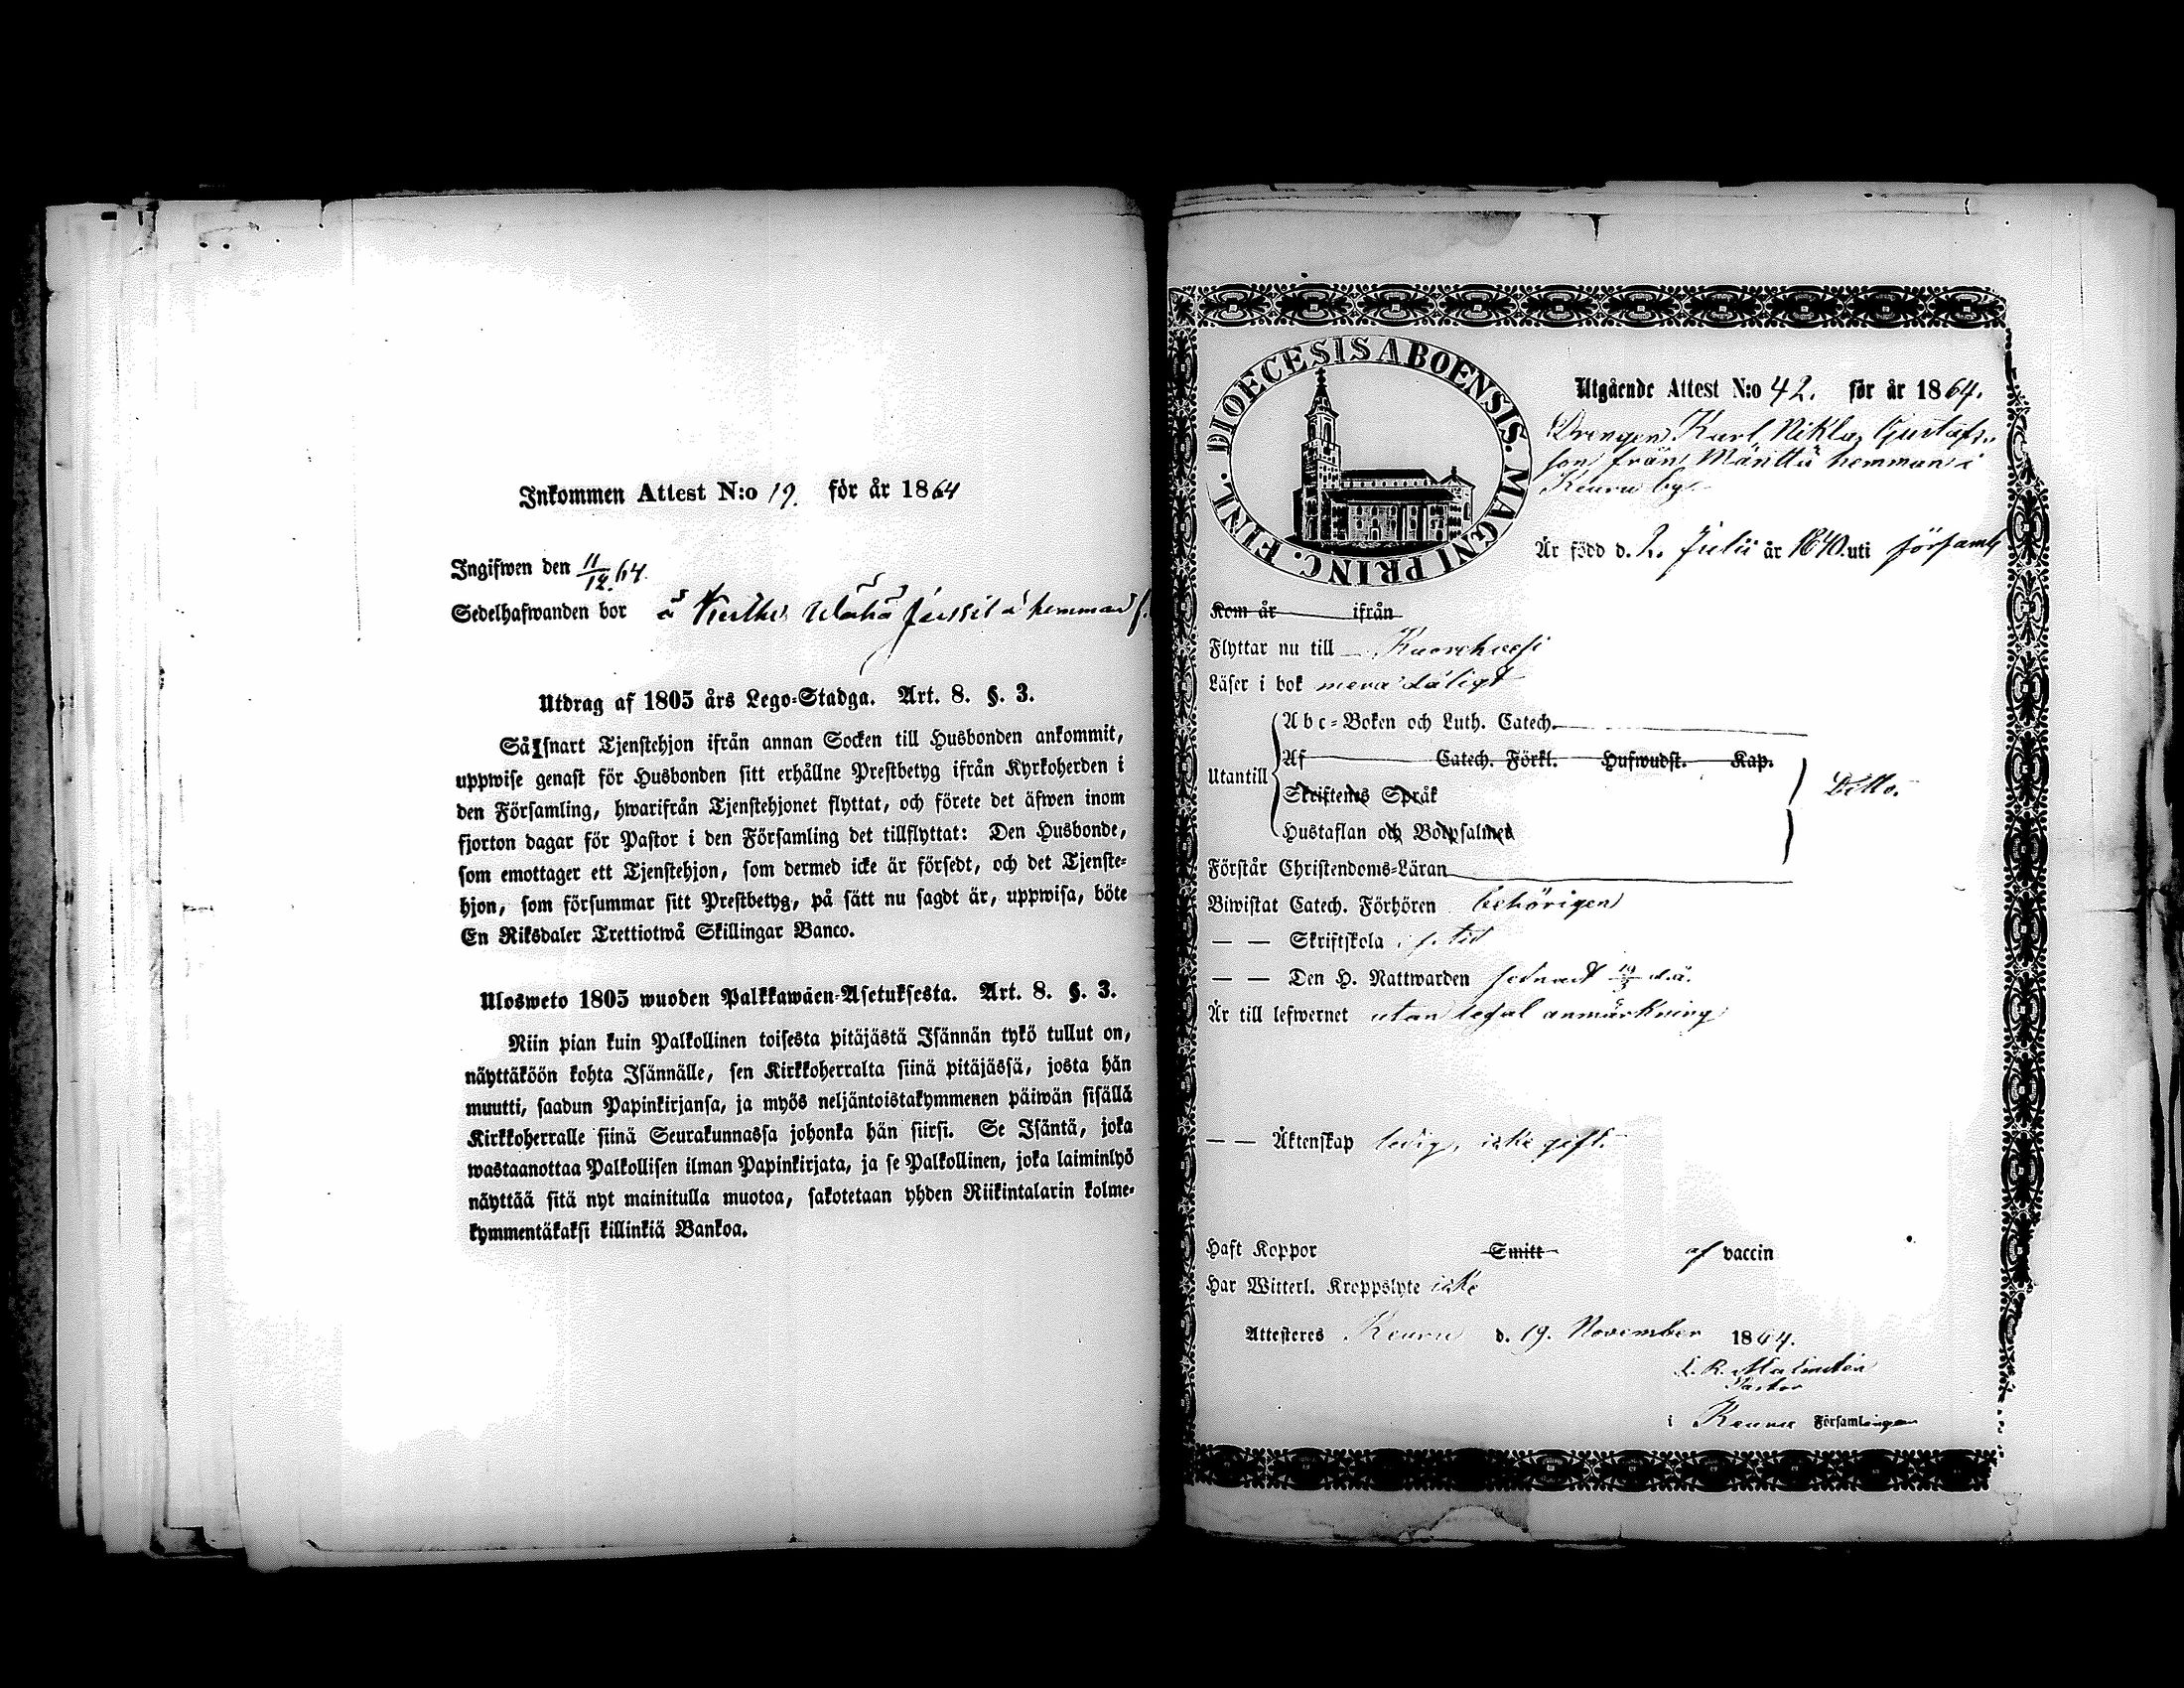 Inkommen Attest N:o 19. för år 1864
Ingifwen den 11/12 64.
Sedelhafwanden bor å Jussila hemman
Utdrag af 1805 års Lego-Stadga. Art. 8. §. 3.
Så snart Tjenstehjon ifrån annan Socken till Husbonden ankommit,
uppwise genast för Husbonden sitt erhållne Prestbetyg ifrån Kyrkoherden i
den Församling, hwarifrån Tjenstehjonet flyttat, och förete det äfwen inom
fjorton dagar för Pastor i den Församling det tillflyttat: Den Husbonde,
som emottager ett Tjenstehjon, som dermed icke är försedt, och det Tjenste-
hjon, som försummar sitt Prestbetyg, på sätt nu sagdt är, uppwisa, böte
En Riksdaler Trettiotwå Skillingar Banco.
Ulosweto 1805 wuoden Palkkawäen-Asetuksesta. Art. 8. §. 3.
Niin pian kuin Palkollinen toisesta pitäjästä Isännän tykö tullut on,
näyttäköön kohta Isännälle, sen Kirkkoherralta siinä pitäjässä, josta hän
muutti, saadun Papinkirjansa, ja myös neljäntoistakymmenen päiwän sisällä
Kirkkoherralle siinä Seurakunnassa johonka hän siirsi. Se Isäntä, joka
wastaanottaa Palkollisen ilman Papinkirjata, ja se Palkollinen, joka laiminlyö
näyttää sitä nyt mainitulla muotoa, sakotetaan yhden Riikintalarin kolme-
kymmentäkaksi killinkiä Bankoa.
DIOECESIS ABOENSIS. MAGNI PRINC. FINL.
Utgående Attest N:o 42. för år 1864.
Drengen Karl Niklas Gustafs-
son från Mänttä hemman i
Keuru by.
Är född d. 2. Julii år 1840. uti församl
Kom år ifrån
Flyttar nu till Kuorehvesi
Läser i bok mera dåligt
Utantill
Abc-Boken och Luth. Catech.
Af Catech. Förkl. Hufwudst. Kap.
Skriftenes Språk
Hustaflan och Botpsalmen
Ditto.
Förstår Christendoms-Läran
Biwistat Catech. Förhören behörigen
— — Skriftskola i s. tid
— — Den H. Nattwarden sednast d.å.
Är till lefwernet utan legal anmärkning
— — Äktenskap ledig, icke gift.
Haft Koppor Smitt af vaccin
Har Witterl. Kroppslyte icke
Attesteres Keuru d. 19. November 1864.
Pastor
i Keuru Församlingen